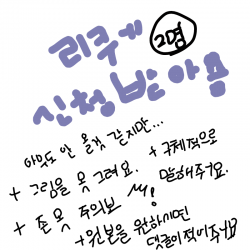 리퀘 2명
신청 받아욤
아약도 안 올것 같지만...
+ 그림을 못 그려요.
+ 구체적으로 말해주거요.
+ 존못 주의보 삐!
+ 원본을 원하시면 댓글이 적어주거